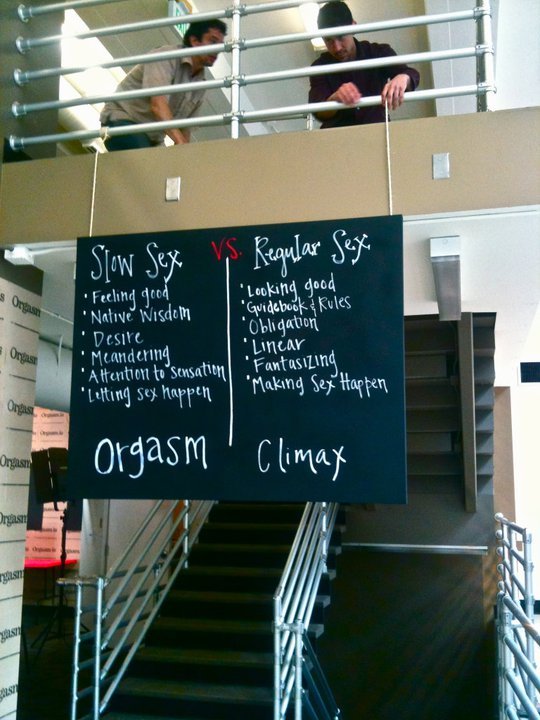 Slow Sex
• Feeling good
• Native Wisdom
• Desire
• Meandering
• Attention to Sensation
• Letting sex happen
Orgasm
VS.
Regular Sex
• Looking good
• Guidebook & Rules
• Obligation
• Linear
• Fantasizing
• Making Sex Happen
Climax
Orgasm
Orgasm
Orgasm
Orgasm